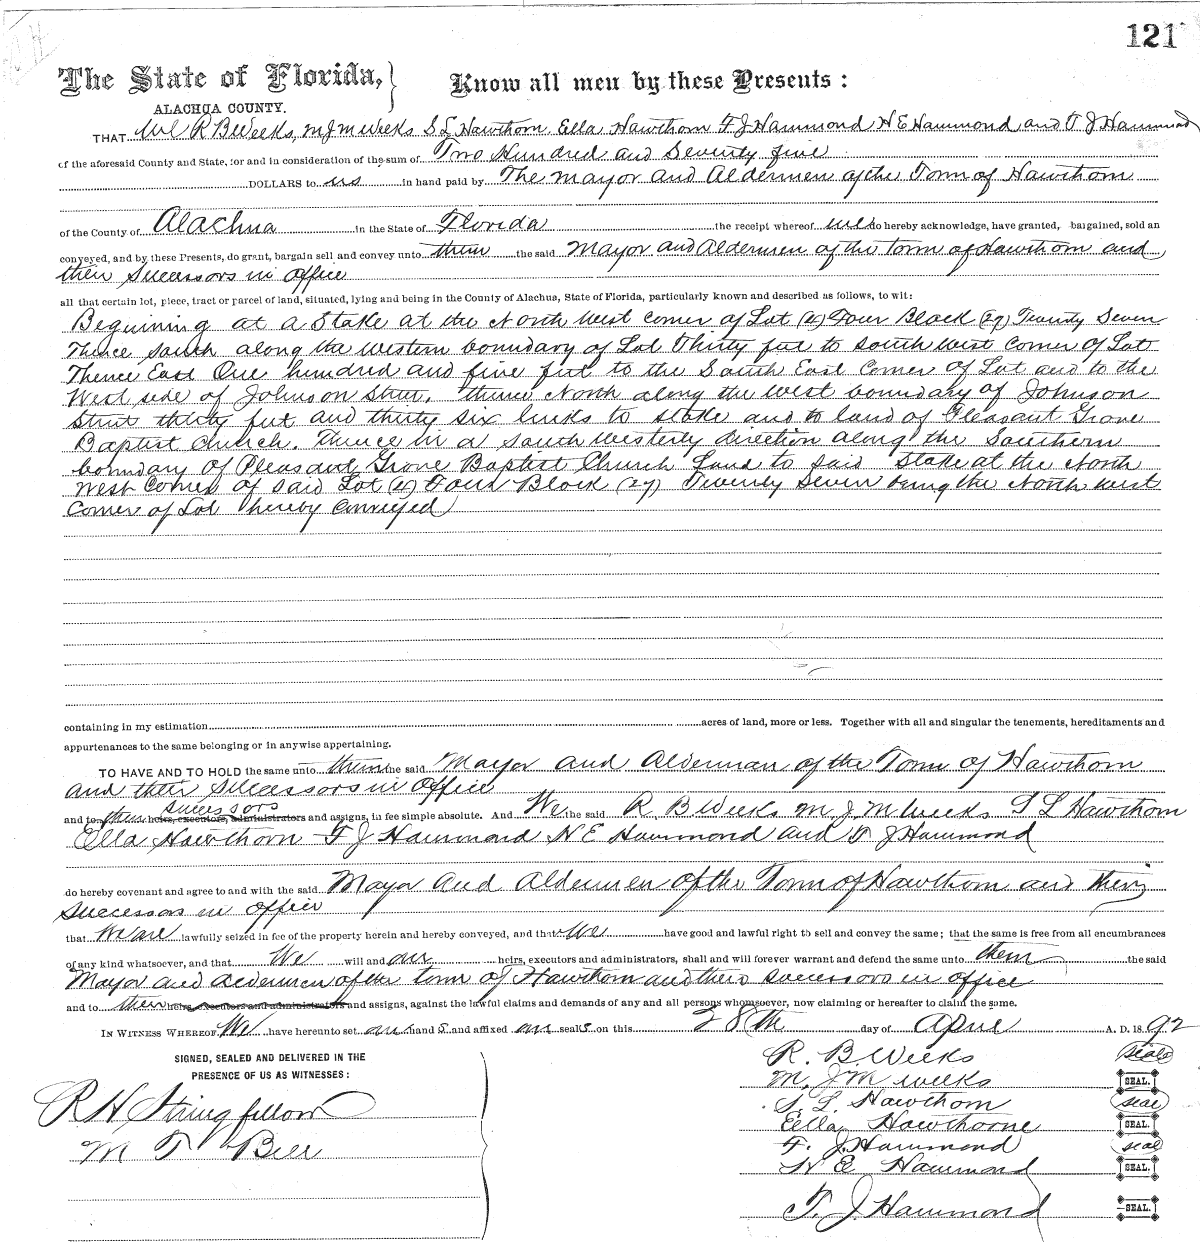 121
The State of Florida, } Know all men by these Presents :
ALACHUA COUNTY.
THAT We R B Weeks, M J M Weeks S L Hawthorn Ella Hawthorn F J Hammond N E Hammond and T J Hammond
of the aforesaid County and State, for and in consideration of the sum of Two Hundred and Seventy five
DOLLARS to us in hand paid by The Mayor and Aldermen of the Town of Hawthorn
of the County of Alachua in the State of Florida the receipt whereof we do hereby acknowledge, have granted, bargained, sold an
conveyed, and by these Presents, do grant, bargain sell and convey unto them the said Mayor and Aldermen of the Town of Hawthorn and
their Successors in office
all that certain lot, piece, tract or parcel of land, situated, lying and being in the County of Alachua, State of Florida, particularly known and described as follows, to wit:
Beginning at a Stake at the North West Corner of Lot (4) Four Block (27) Twenty Seven
Thence South along the western boundary of Lot Thirty feet to South West Corner of Lot
Thence East One hundred and five feet to the South East Corner of Lot and to the
West side of Johnson Street, thence North along the West boundary of Johnson
Street thirty feet and thirty six links to stake and to land of Pleasant Grove
Baptist Church. Thence in a South Westerly direction along the Southern
boundary of Pleasant Grove Baptist Church Land to said Stake at the North
West Corner of said Lot (4) Four Block (27) Twenty Seven being the North West
Corner of Lot hereby conveyed
containing in my estimation acres of land, more or less. Together with all and singular the tenements, hereditaments and
appurtenances to the same belonging or in anywise appertaining.
TO HAVE AND TO HOLD the same unto them the said Mayor and Alderman of the Town of Hawthorn
and their Successors in office
successors
and to their heirs, executors, administrators and assigns, in fee simple absolute. And We the said R B Weeks M. J M Weeks S L Hawthorn
Ella Hawthorn F J Hammond N E Hammond and T J Hammond
do hereby covenant and agree to and with the said Mayor and Aldermen of the Town of Hawthorn and their
successors in office
that we are lawfully seized in fee of the property herein and hereby conveyed, and that We have good and lawful right to sell and convey the same; that the same is free from all encumbrances
of any kind whatsoever, and that We will and our heirs, executors and administrators, shall and will forever warrant and defend the same unto them the said
Mayor and Aldermen of the town of Hawthorn and their successors in office
and to their heirs, executors and administrators and assigns, against the lawful claims and demands of any and all persons whomsoever, now claiming or hereafter to claim the same.
IN WITNESS WHEREOF, We have hereunto set our hand s and affixed our seal s on this 28th day of April A. D. 18 92
SIGNED, SEALED AND DELIVERED IN THE
PRESENCE OF US AS WITNESSES :
R H Stringfellow
M T Bell
R. B Weeks seal
M. J M Weeks SEAL.
S. L. Hawthorn seal
Eella Hawthorne SEAL.
F. J Hammond seal
N E Hammond SEAL.
T. J. Hammond SEAL.